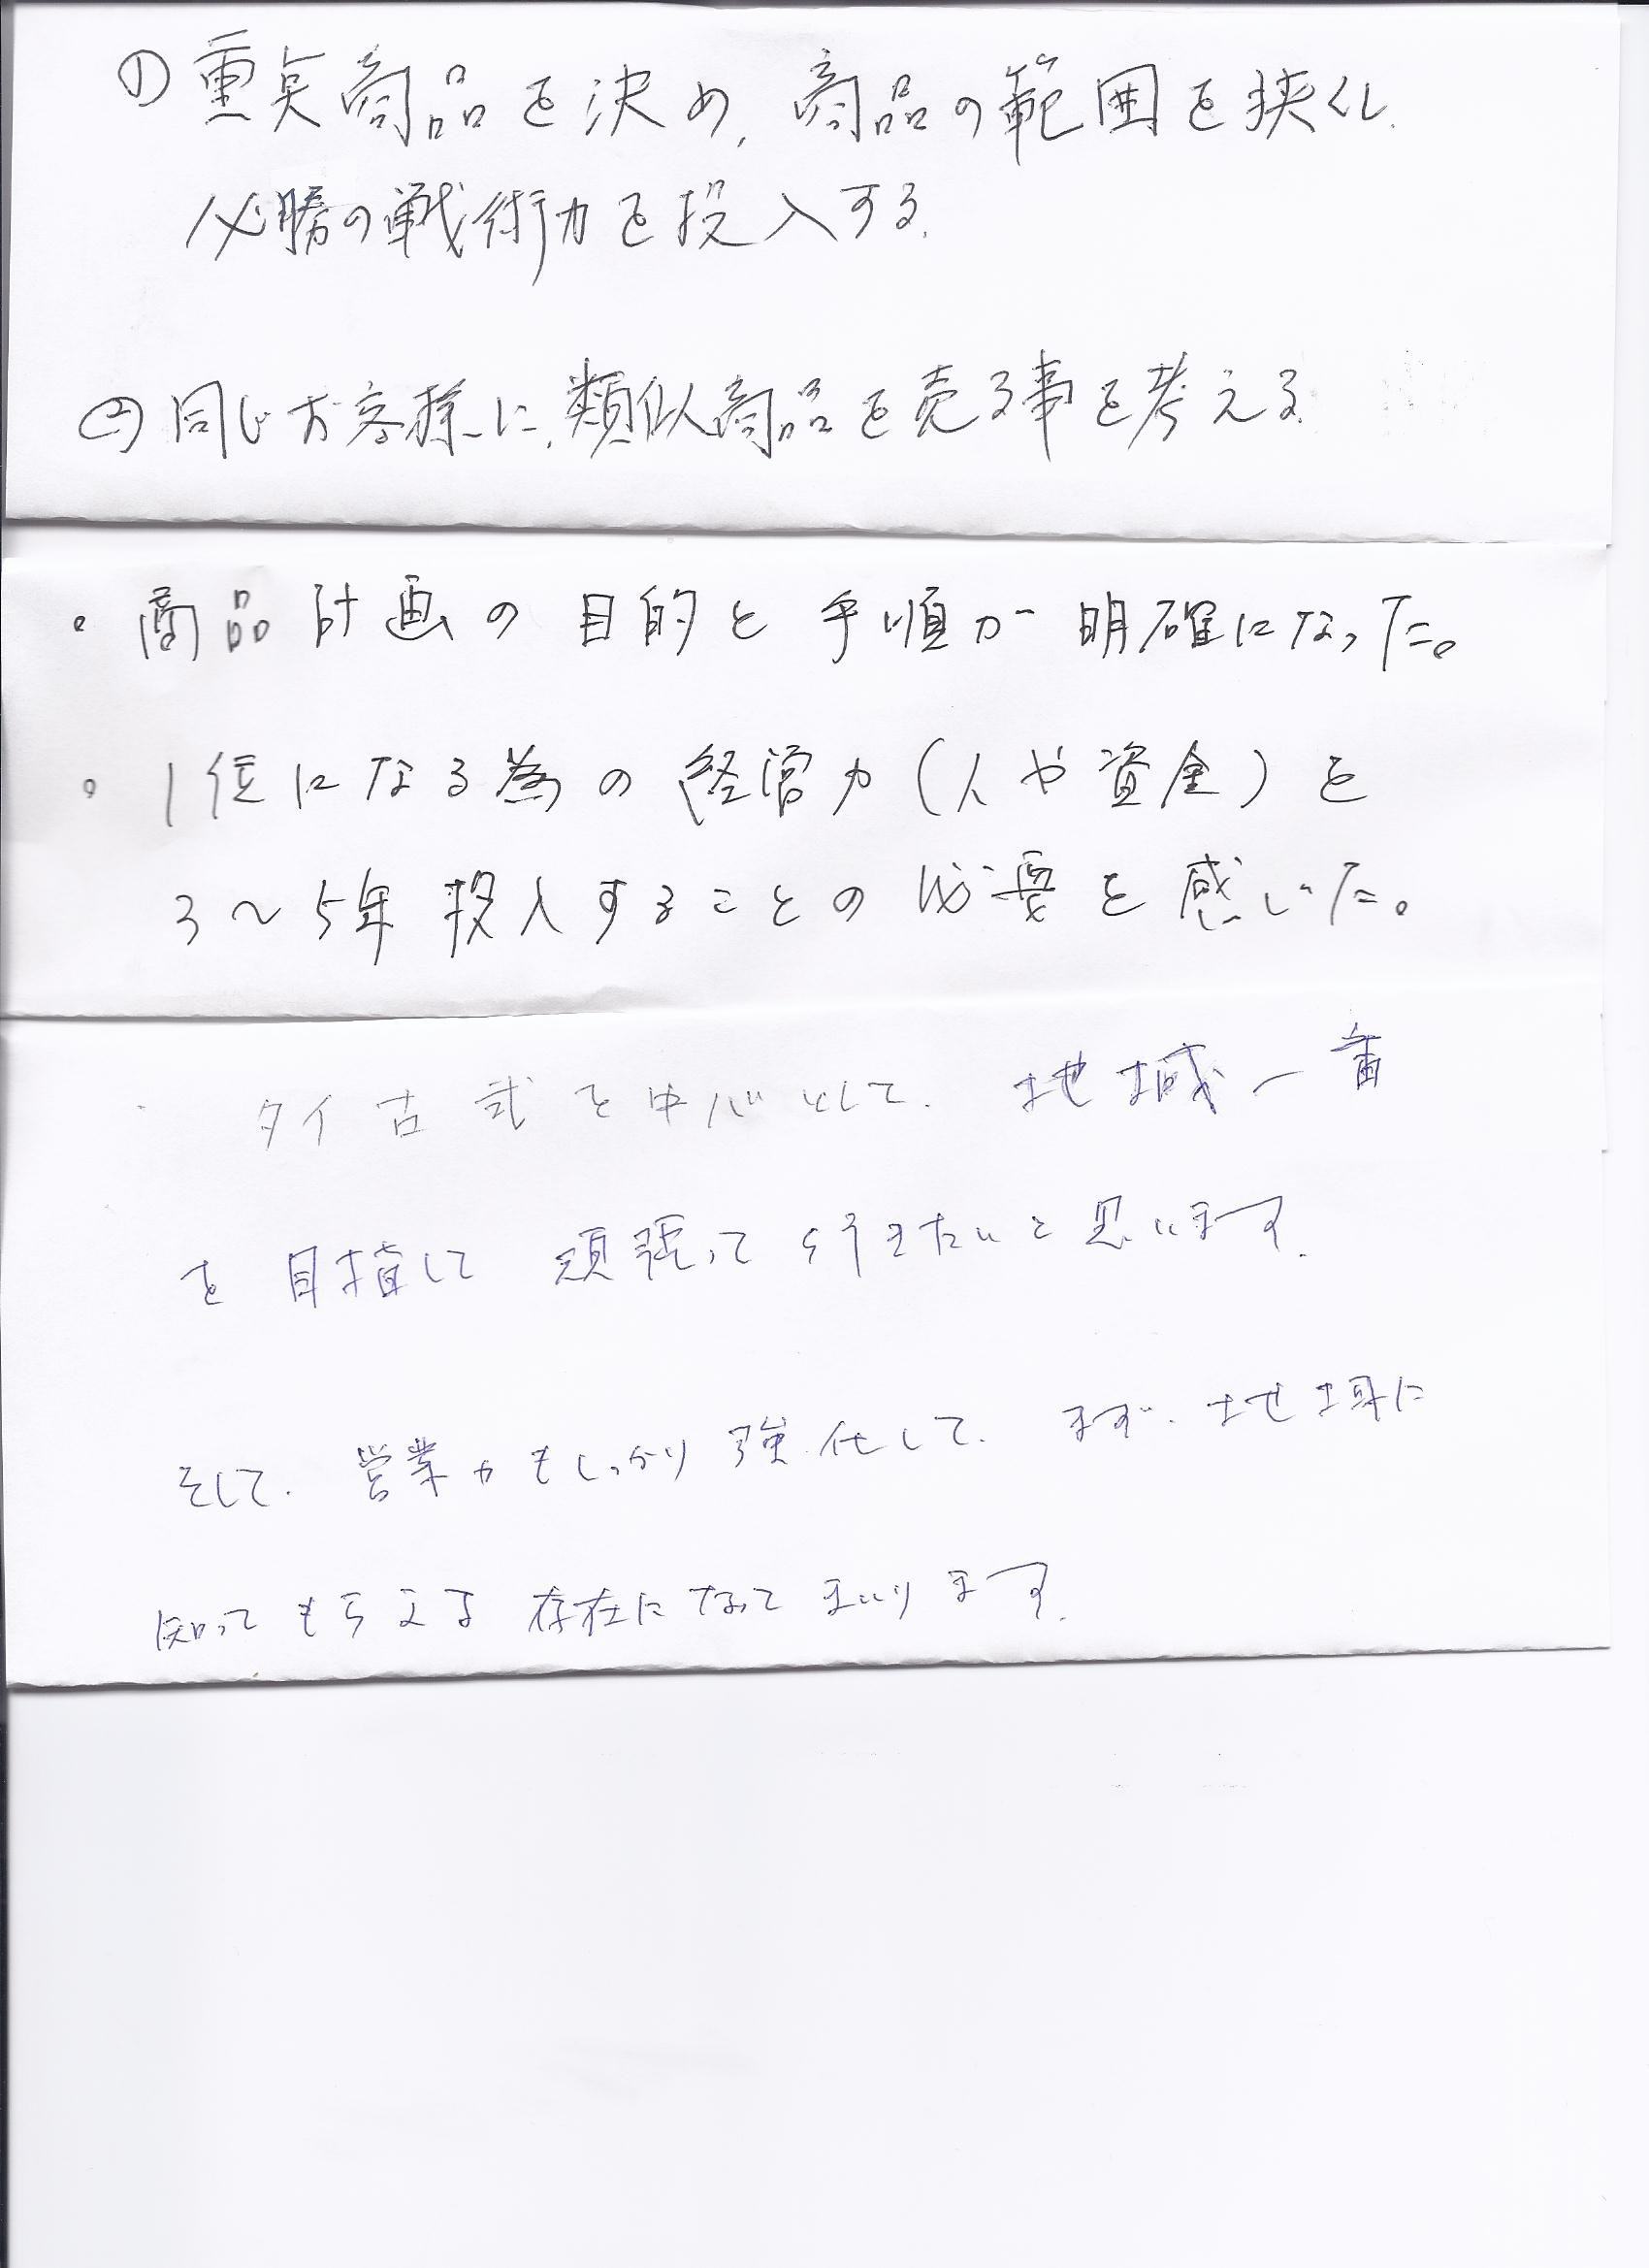 ① 重点商品を決め、商品の範囲を狭くし、
必勝の戦術力を投入する。
② 同じお客様に、類似商品を売る事を考える。
・商品計画の目的と手順が明確になった。
・1位になる為の経営力(人や資金)を
3〜5年投入することの必要を感じた。
タイ古式を中心として、地域一番
を目指して頑張って行きたいと思います。
そして、営業力もしっかり強化して、まず、地域に
知ってもらえる存在になってまいります。